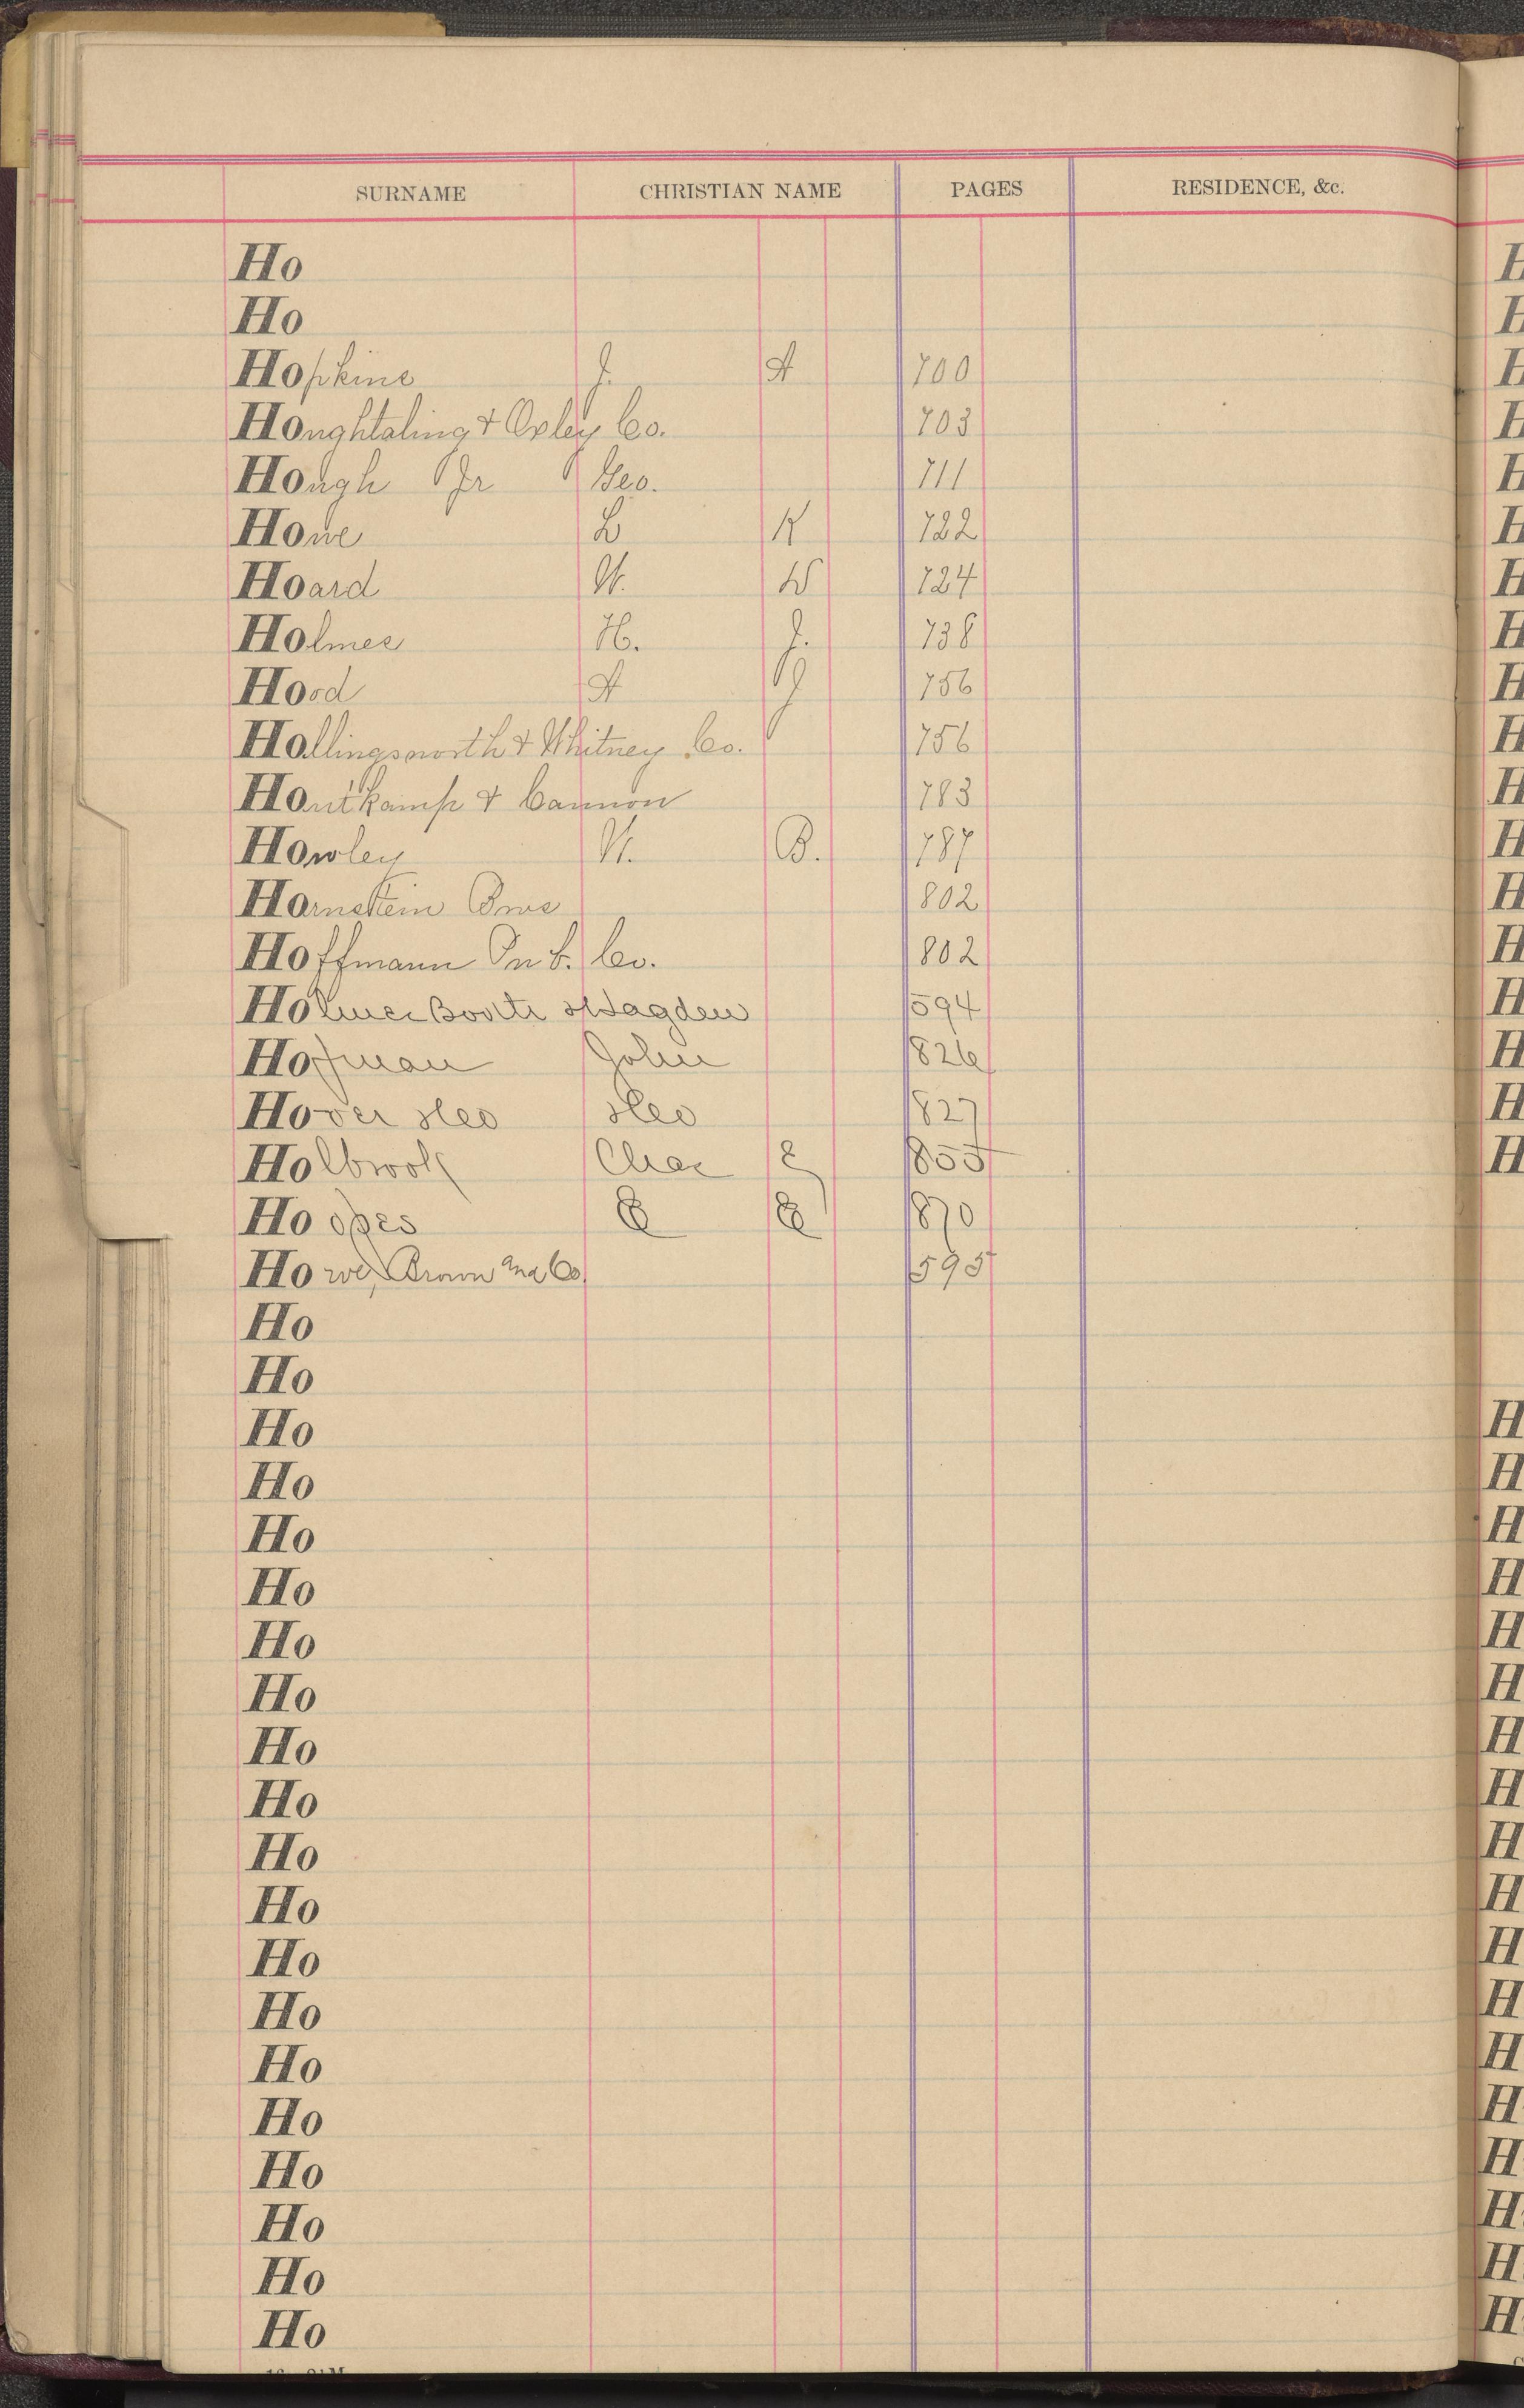 SURNAME CHRISTIAN NAME PAGES RESIDENCE, &c.
Ho
Ho
Hopkins J. A 700
Houghtaling & Oxley Co. 703
Hough Jr Geo. 711
Howe L K 722
Hoard W. W 724
Holmes H. J. 738
Hood A G 756
Hollingsworth & Whitney Co. 756
Houtkamp & Cannon 783
Howley W. B. 787
Hornstein Bros 802
Hoffmann Co. 802
Holmes Booth & Hayden 594
Hofman John 826
Hover Geo Geo 827
Holbrook Chas E 855
Hoopes E E 870
Howe, Brown Co 595
Ho
Ho
Ho
Ho
Ho
Ho
Ho
Ho
Ho
Ho
Ho
Ho
Ho
Ho
Ho
Ho
Ho
Ho
Ho
Ho